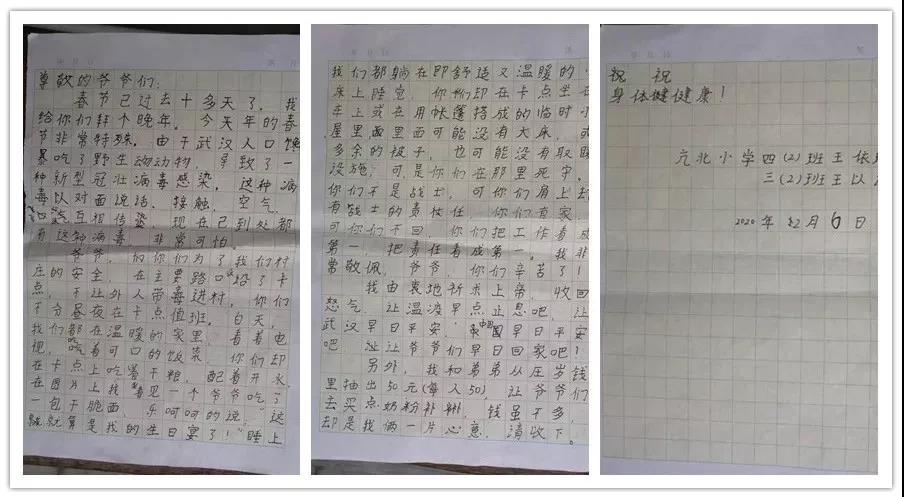 尊敬的爷爷们：
春节已过去十多天了，我
给你们拜个晚年。今天年的春
节非常特殊。由于武汉人口馋
暴吃了野生动动物，导致了一
种新型冠壮病毒感染。这种病
毒以对面说话、接触、空气、
口气互相传染，现在已到处都
有这种病毒，非常可怕。
爷爷，们你们为了我们村
庄的安全，在主要路口设了卡
点，不让外人带毒进村，你们
不分昼夜在卡点值班。白天，
我们都在温暖的家里，看着电
视，吃着可口的饭菜，你们却
在卡点上吃着干粮，配着开水，
在图片上我看见一个爷爷吃了
一包干脆面，乐呵呵的说，“这
就算是我的生日宴了！”睡上
我们都躺在即舒适又温暖的
床上睡觉，你们却在卡点坐在
车上或在用帐篷搭成的临时小
屋里面里面可能没有大床，或
多余的被子，也可能没有取暖
设施，可是你们在那里死守。
你们不是战士，可你们肩上扛
有战士的责任，你们有家，
可你们不回，你们把工作看成
第一，把责任看成第一。我非
常敬佩，爷爷，你们辛苦了！
我由衷地祈求上帝，收回
怒气，让温疫早点止息吧，让
武汉早日平安，中国早日平安
吧，让爷爷们早日回家吧！
另外，我和弟弟从压岁钱
里抽出50元(每人50)，让爷爷们
去买点奶粉补补，钱虽不多，
却是我俩一片心意，请收下。
祝 祝
身体健健康！
亢北小学四(2)班王依
三(2)班王以
2020年2月6日